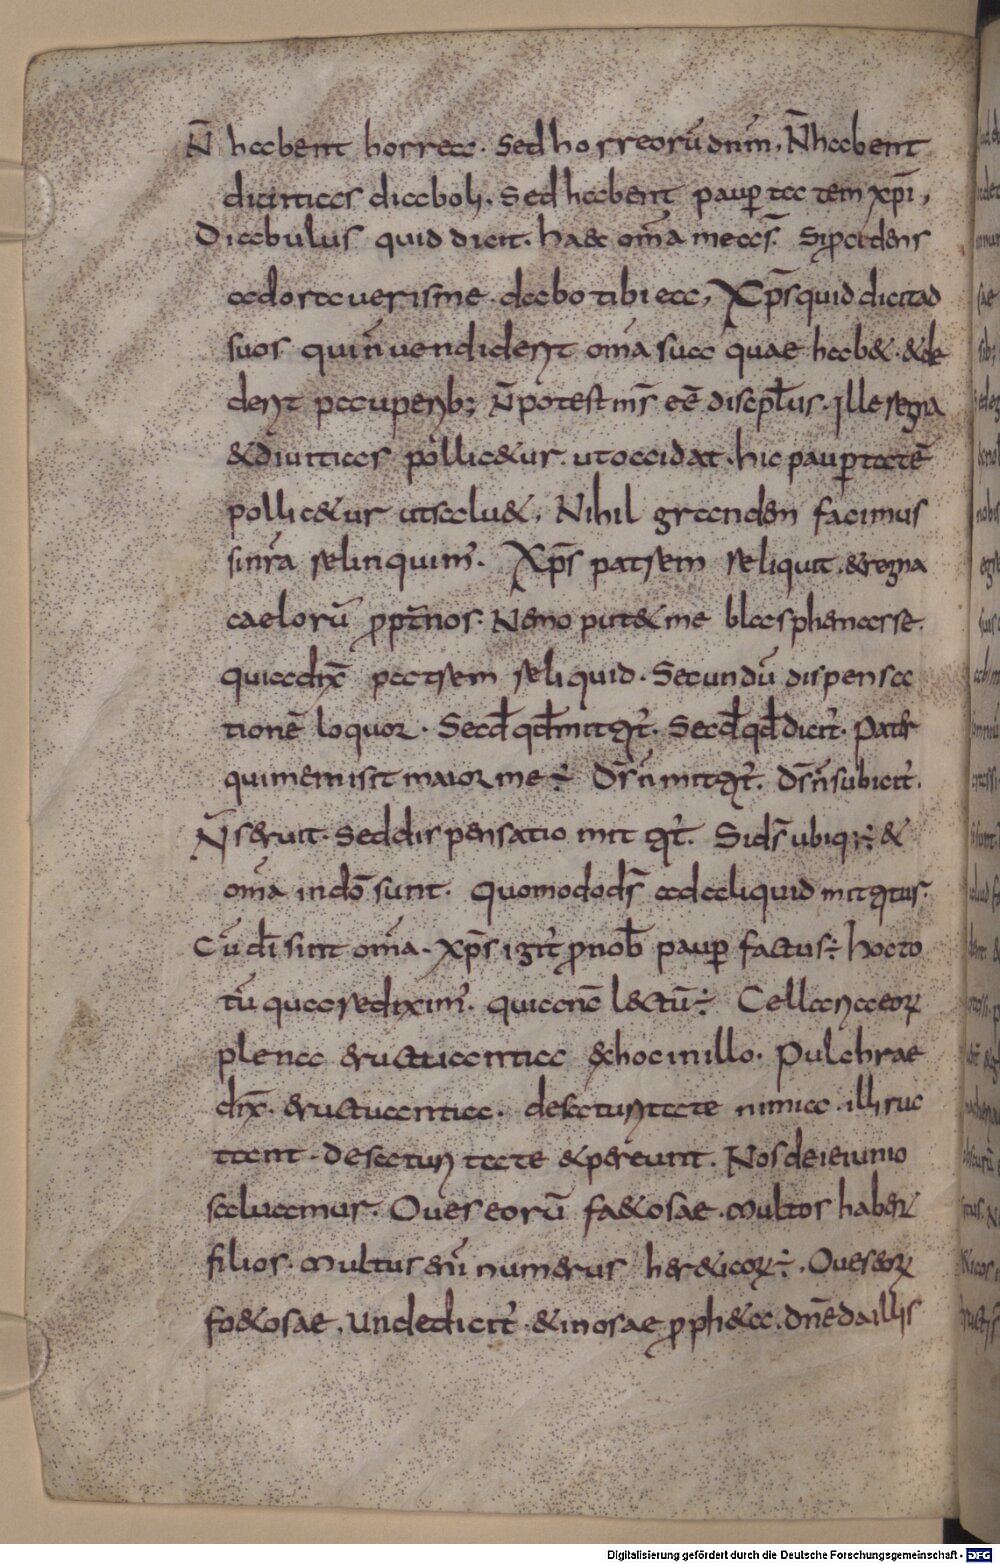 N̄ habent horrea. Sed horreorū dn̄m. N̄ habent
diuitias diaboli. Sed habent paup̲tatem xp̄i,
Diabulus quid dicit. haec om̄a mea s̄. Si p̲cidens
adoraueris me. dabo tibi ea, Xp̄s quid dicit ad
suos qui n̄ uendiderit om̄a sua quae hab&. & de
derit pauperib; N̄ potest m̄s eē discip̄lus. Ille regna
& diuitias pollic&ur. ut occidat. hic paup̲tatē
pollic&ur ut salu&, Nihil granden facimus
si n̄ra relinquim'. Xp̄s patrem reliquit. & regna
caelorū p̲pt̄ nos. Nemo put& me blasphemasse.
quia dix̄ patrem reliquid. Secundū dispensa
tionē loquor. Sec̄d q̄d mittit̄. Sec̄d q̄d dicit̄. Pater
qui me misit maior me ÷ D̄s n̄ mittit̄. D̄s n̄ subicit̄.
N̄ seruit. Sed dispensatio mittit̄. Si d̄s ubiq; ÷ &
om̄a in dō sunt. Quomodo d̄s ad aliquid mittitur.
Cū d̄i sint om̄a. Xp̄s igit̄ p̲ nob̄ paup̲ factus ÷ hoc to
tū quare dixim'. quia nc̄ lectū ÷ Cellaria eoꝝ
plena eructuantia ex hoc in illo. Pulchrae
dix̄. eructuantia. de saturitate nimia. illi ruc
tant. De saturitate & pereunt. Nos de ieiunio
saluamur. Oues eorū fa&osae. Multos haben̄
filios. Multus eni numerus her&icoꝝ ÷. Oues eoꝝ
fo&osae. Unde dicit̄ & in osae p̲ph&a. dn̄e da illis
Digitalisierung gefördert durch die Deutsche Forschungsgemeinschaft - DFG